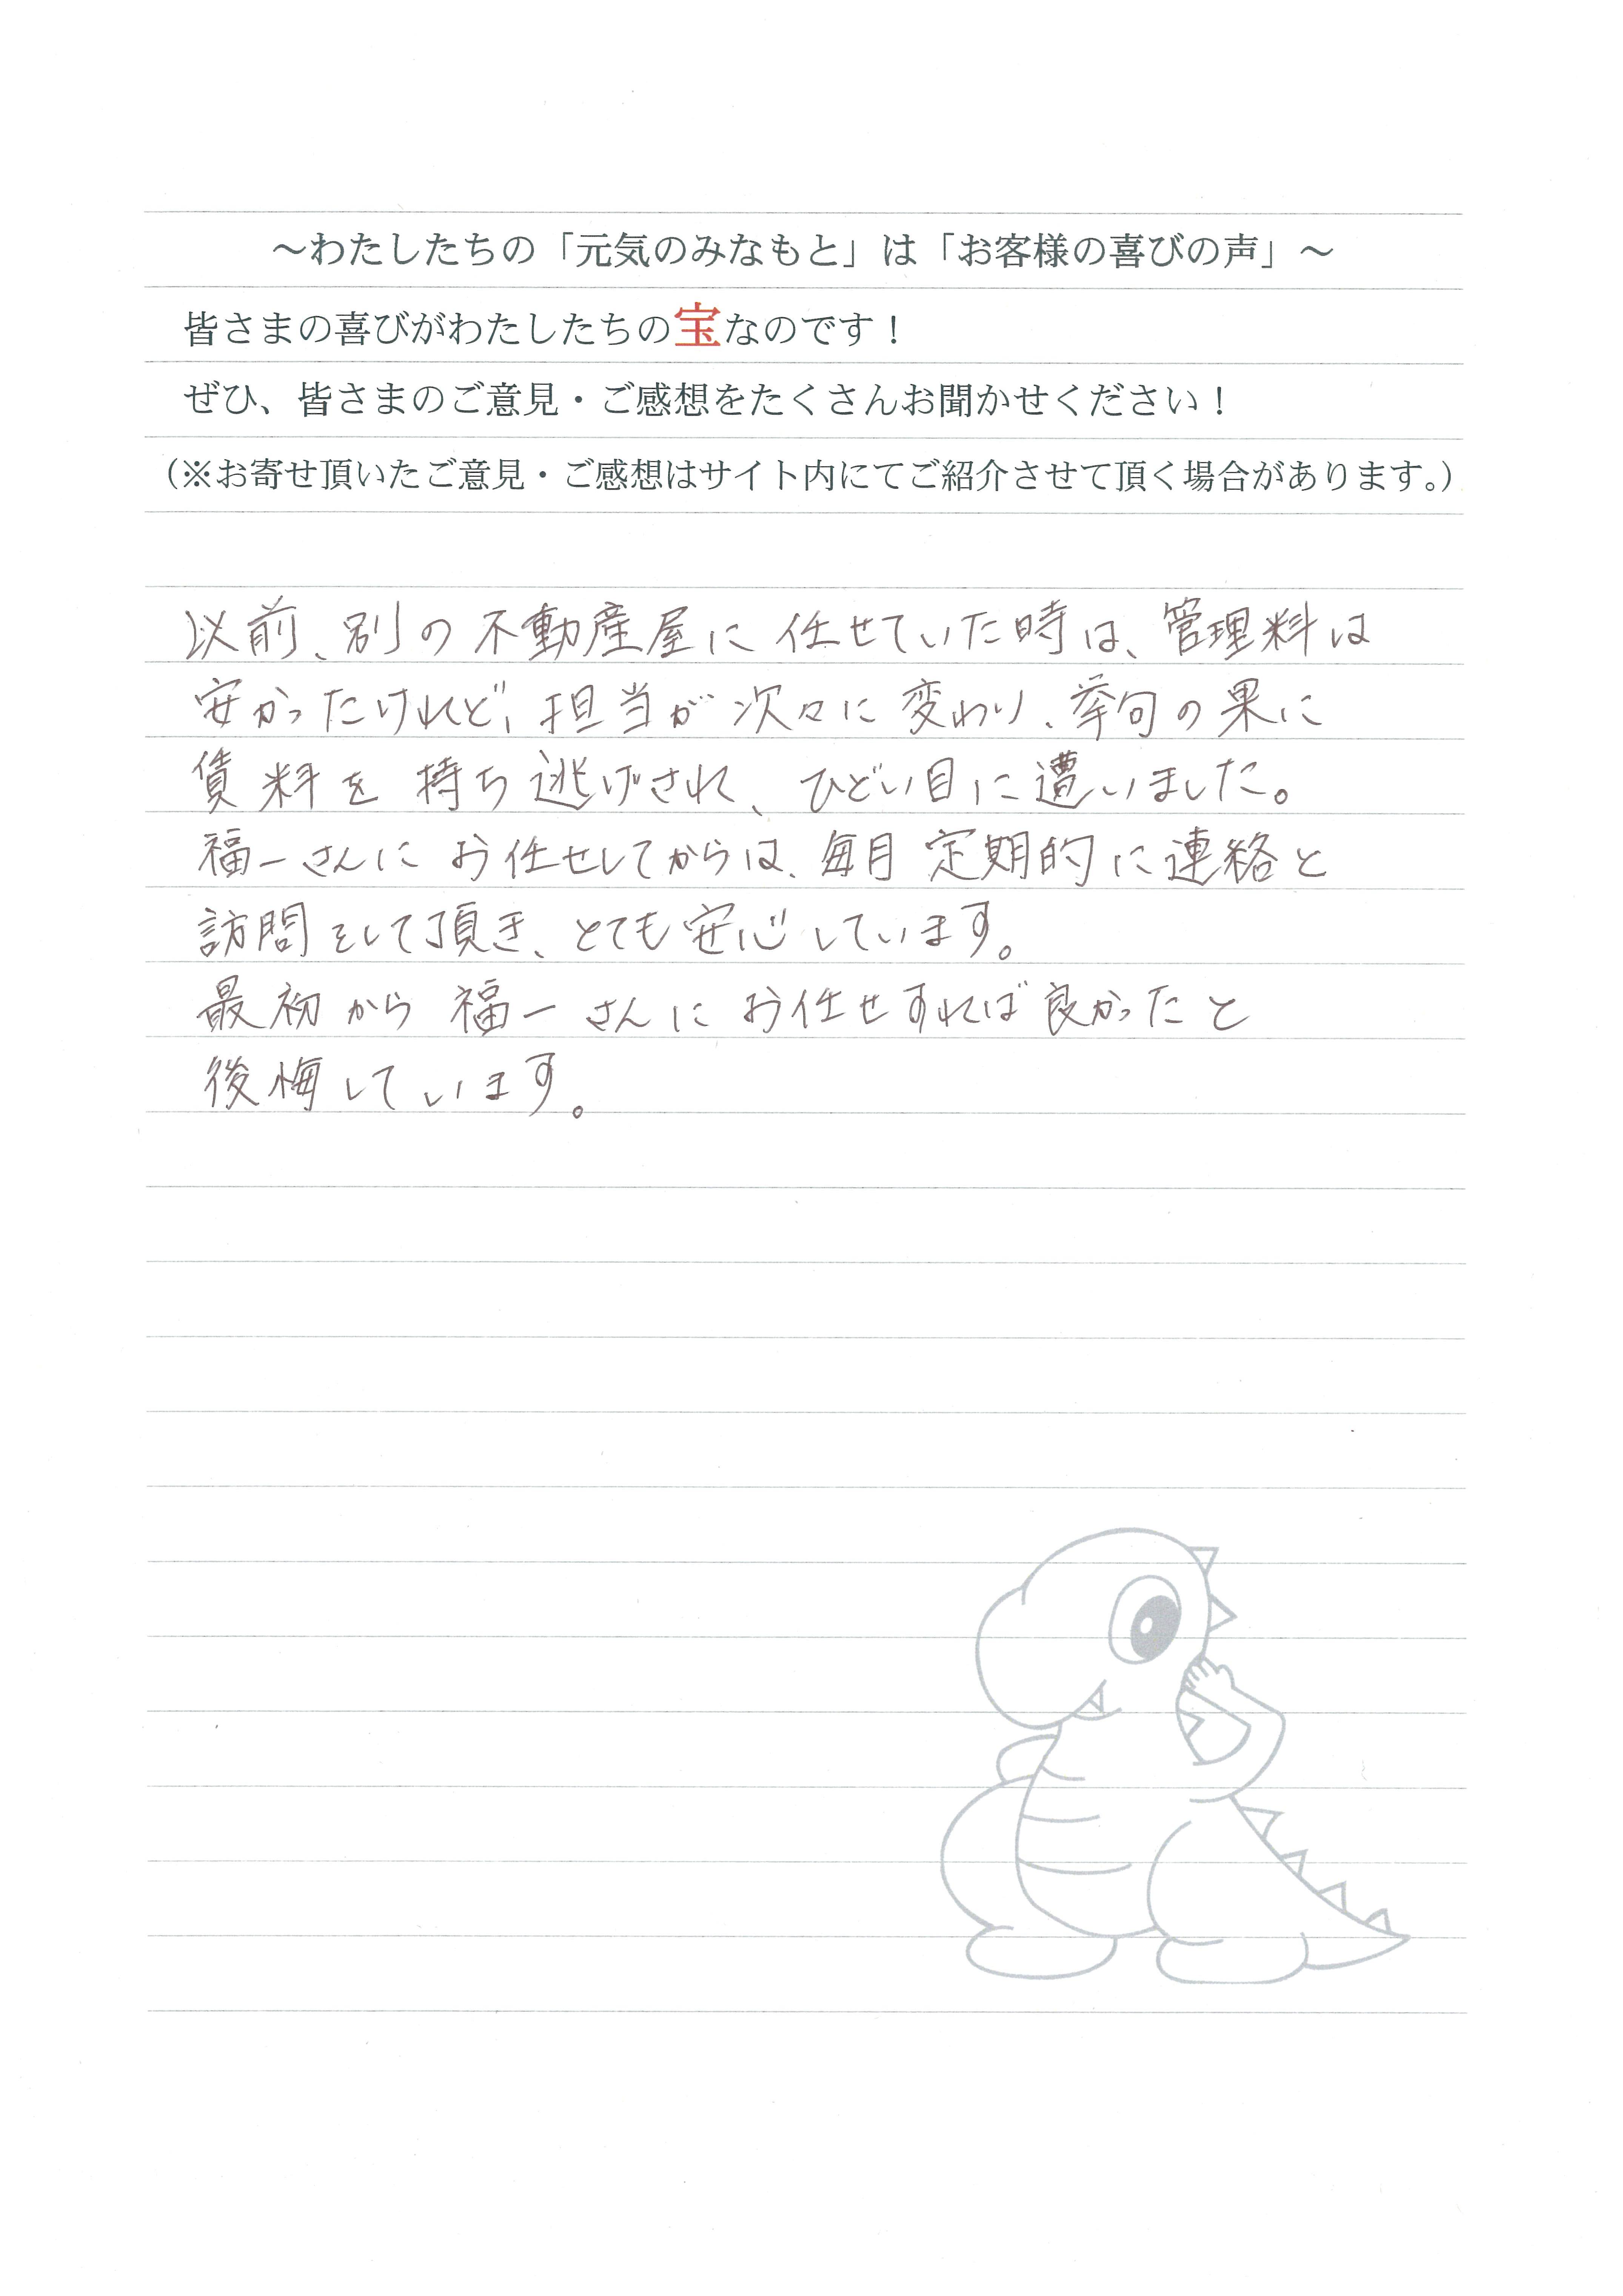 ～わたしたちの「元気のみなもと」は「お客様の喜びの声」～
皆さまの喜びがわたしたちの宝なのです！
ぜひ、皆さまのご意見・ご感想をたくさんお聞かせください！
（※お寄せ頂いたご意見・ご感想はサイト内にてご紹介させて頂く場合があります。）
以前、別の不動産屋に任せていた時は、管理料は
安かったけれど、担当が次々に変わり、挙句の果に
賃料を持ち逃げされ、ひどい目に遭いました。
福一さんにお任せしてからは、毎月定期的に連絡と
訪問をして頂き、とても安心しています。
最初から福一さんにお任せすれば良かったと
後悔しています。